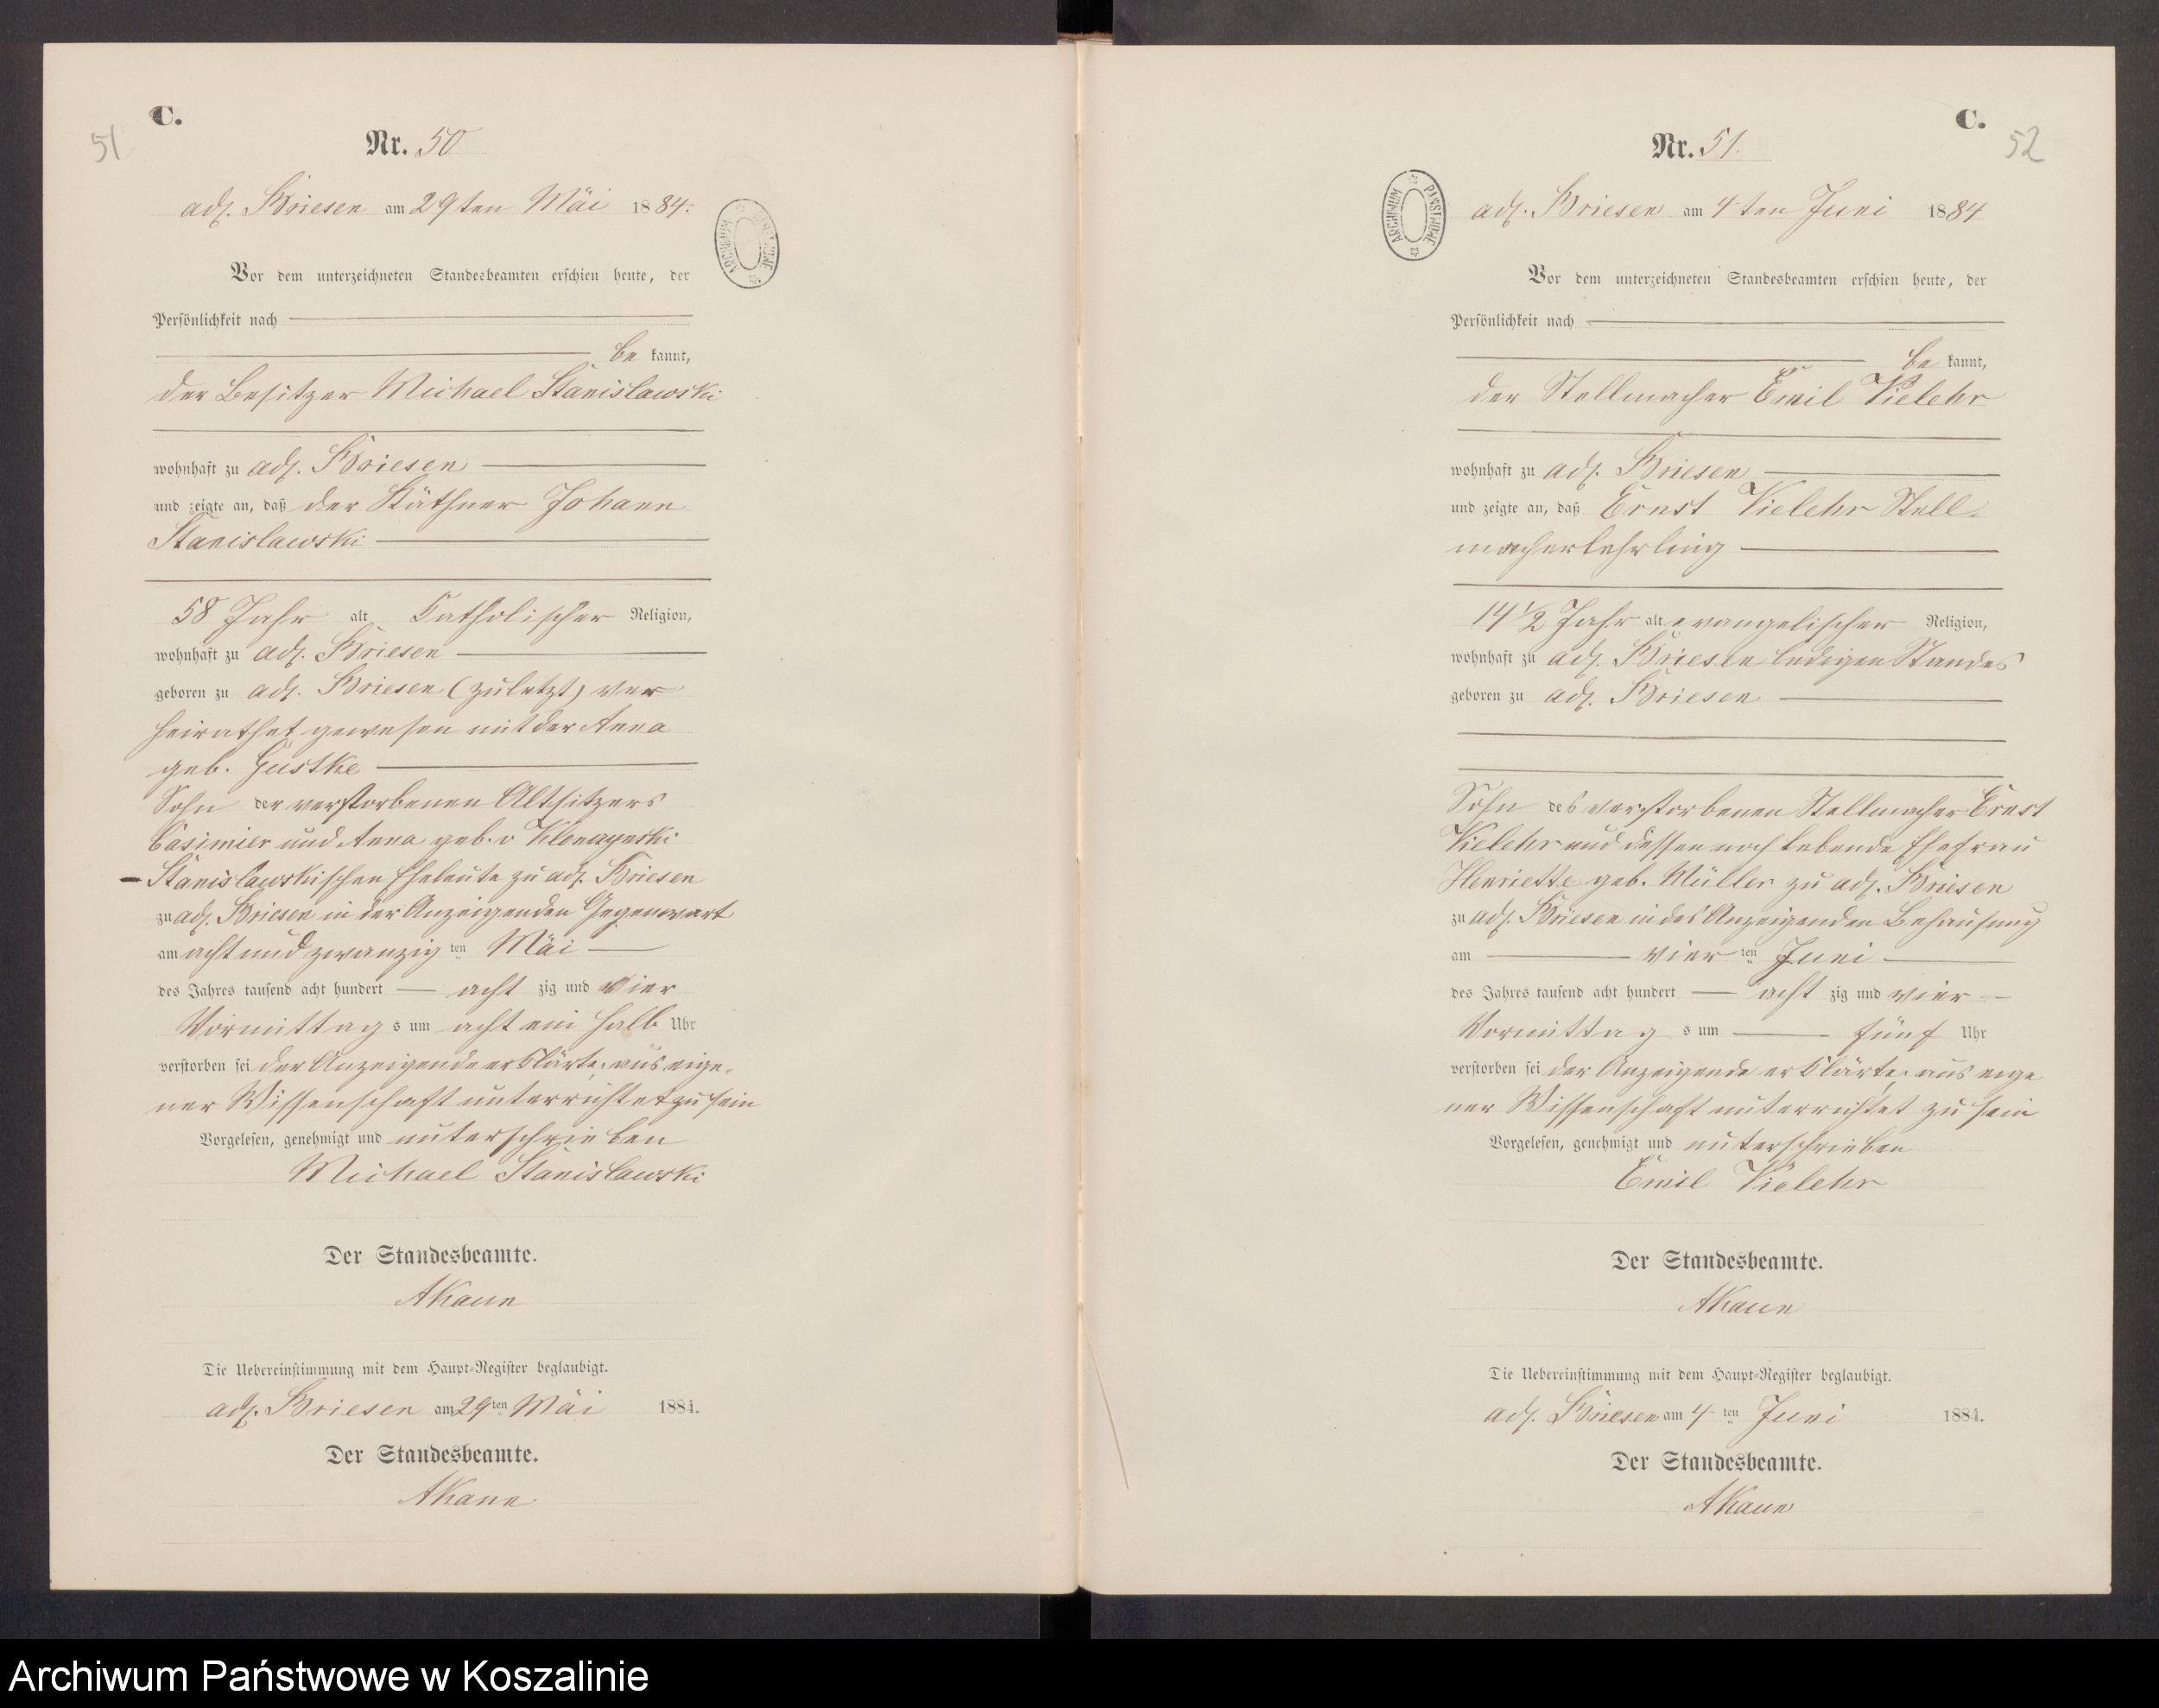 C.
51
Nr. 50
adl. Briesen am 29ten Mai 1884.
ARCHIWUM PAŃSTWOWE
Vor dem unterzeichneten Standesbeamten erschien heute, der
Persönlichkeit nach
be kannt,
der Besitzer Michael Stanislawski
wohnhaft zu adl. Briesen
und zeigte an, daß der Käthner Johann
Stanislawski
58 Jahr alt Catholischer Religion,
wohnhaft zu adl. Briesen
geboren zu adl. Briesen (zuletzt) ver
heirathet gewesen mit der Anna
geb. Gustke
Sohn der verstorbenen Altsitzers
Casimier und Anna geb. v
Stanislawskischen Eheleute zu adl. Briesen
zu adl. Briesen in der Anzeigenden Gegenwart
am acht und zwanzig ten Mai
des Jahres tausend acht hundert acht zig und vier
Vormittag s um acht ein halb Uhr
verstorben sei der Anzeigende erklärte, aus eige-
ner Wissenschaft unterrichtet zu sein
Vorgelesen, genehmigt und unterschrieben
Michael Stanislawski
Der Standesbeamte.
AKaun
Die Uebereinstimmung mit dem Haupt-Register beglaubigt.
adl. Briesen am 29ten Mai 1884.
Der Standesbeamte.
AKaun
C.
52
Nr. 51.
adl. Briesen am 4 ten Juni 1884
ARCHIWUM PAŃSTWOWE
Vor dem unterzeichneten Standesbeamten erschien heute, der
Persönlichkeit nach
be kannt,
der Stellmacher Emil Vielehr
wohnhaft zu adl. Briesen
und zeigte an, daß Ernst Vielehr Stell-
macherlehrling
14 1/2 Jahr alt evangelischer Religion,
wohnhaft zu adl. Briesen ledigen Standes
geboren zu adl. Briesen
Sohn des verstorbenen Stellmacher Ernst
Vielehr und dessen noch lebende Ehefrau
Henriette geb. Müller zu adl. Briesen
zu adl. Briesen in des Anzeigenden Behausung
am vier ten Juni
des Jahres tausend acht hundert acht zig und vier
Vormittag s um fünf Uhr
verstorben sei der Anzeigende erklärte, aus eige
ner Wissenschaft unterrichtet zu sein
Vorgelesen, genehmigt und unterschrieben
Emil Vielehr
Der Standesbeamte.
AKaun
Die Uebereinstimmung mit dem Haupt-Register beglaubigt.
adl. Briesen am 4 ten Juni 1884.
Der Standesbeamte.
AKaun
Archiwum Państwowe w Koszalinie